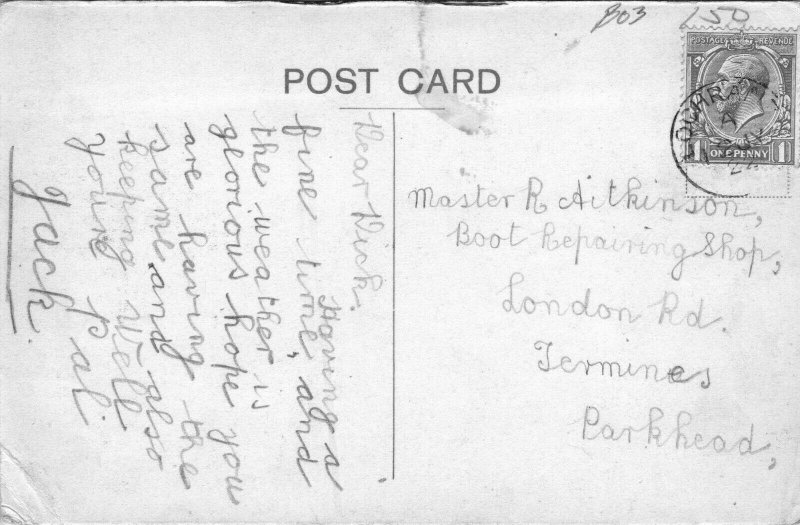 803
150
POST CARD
POSTAGE REVENUE
ONE PENNY
1 1
Dear Dick.
Having a
fine time, and
the weather is
glorious hope you
are having the
same and also
keeping well
your Pal
Jack.
Master R Aitkinson,
Boot Repairing Shop,
London Rd.
Termines
Parkhead,